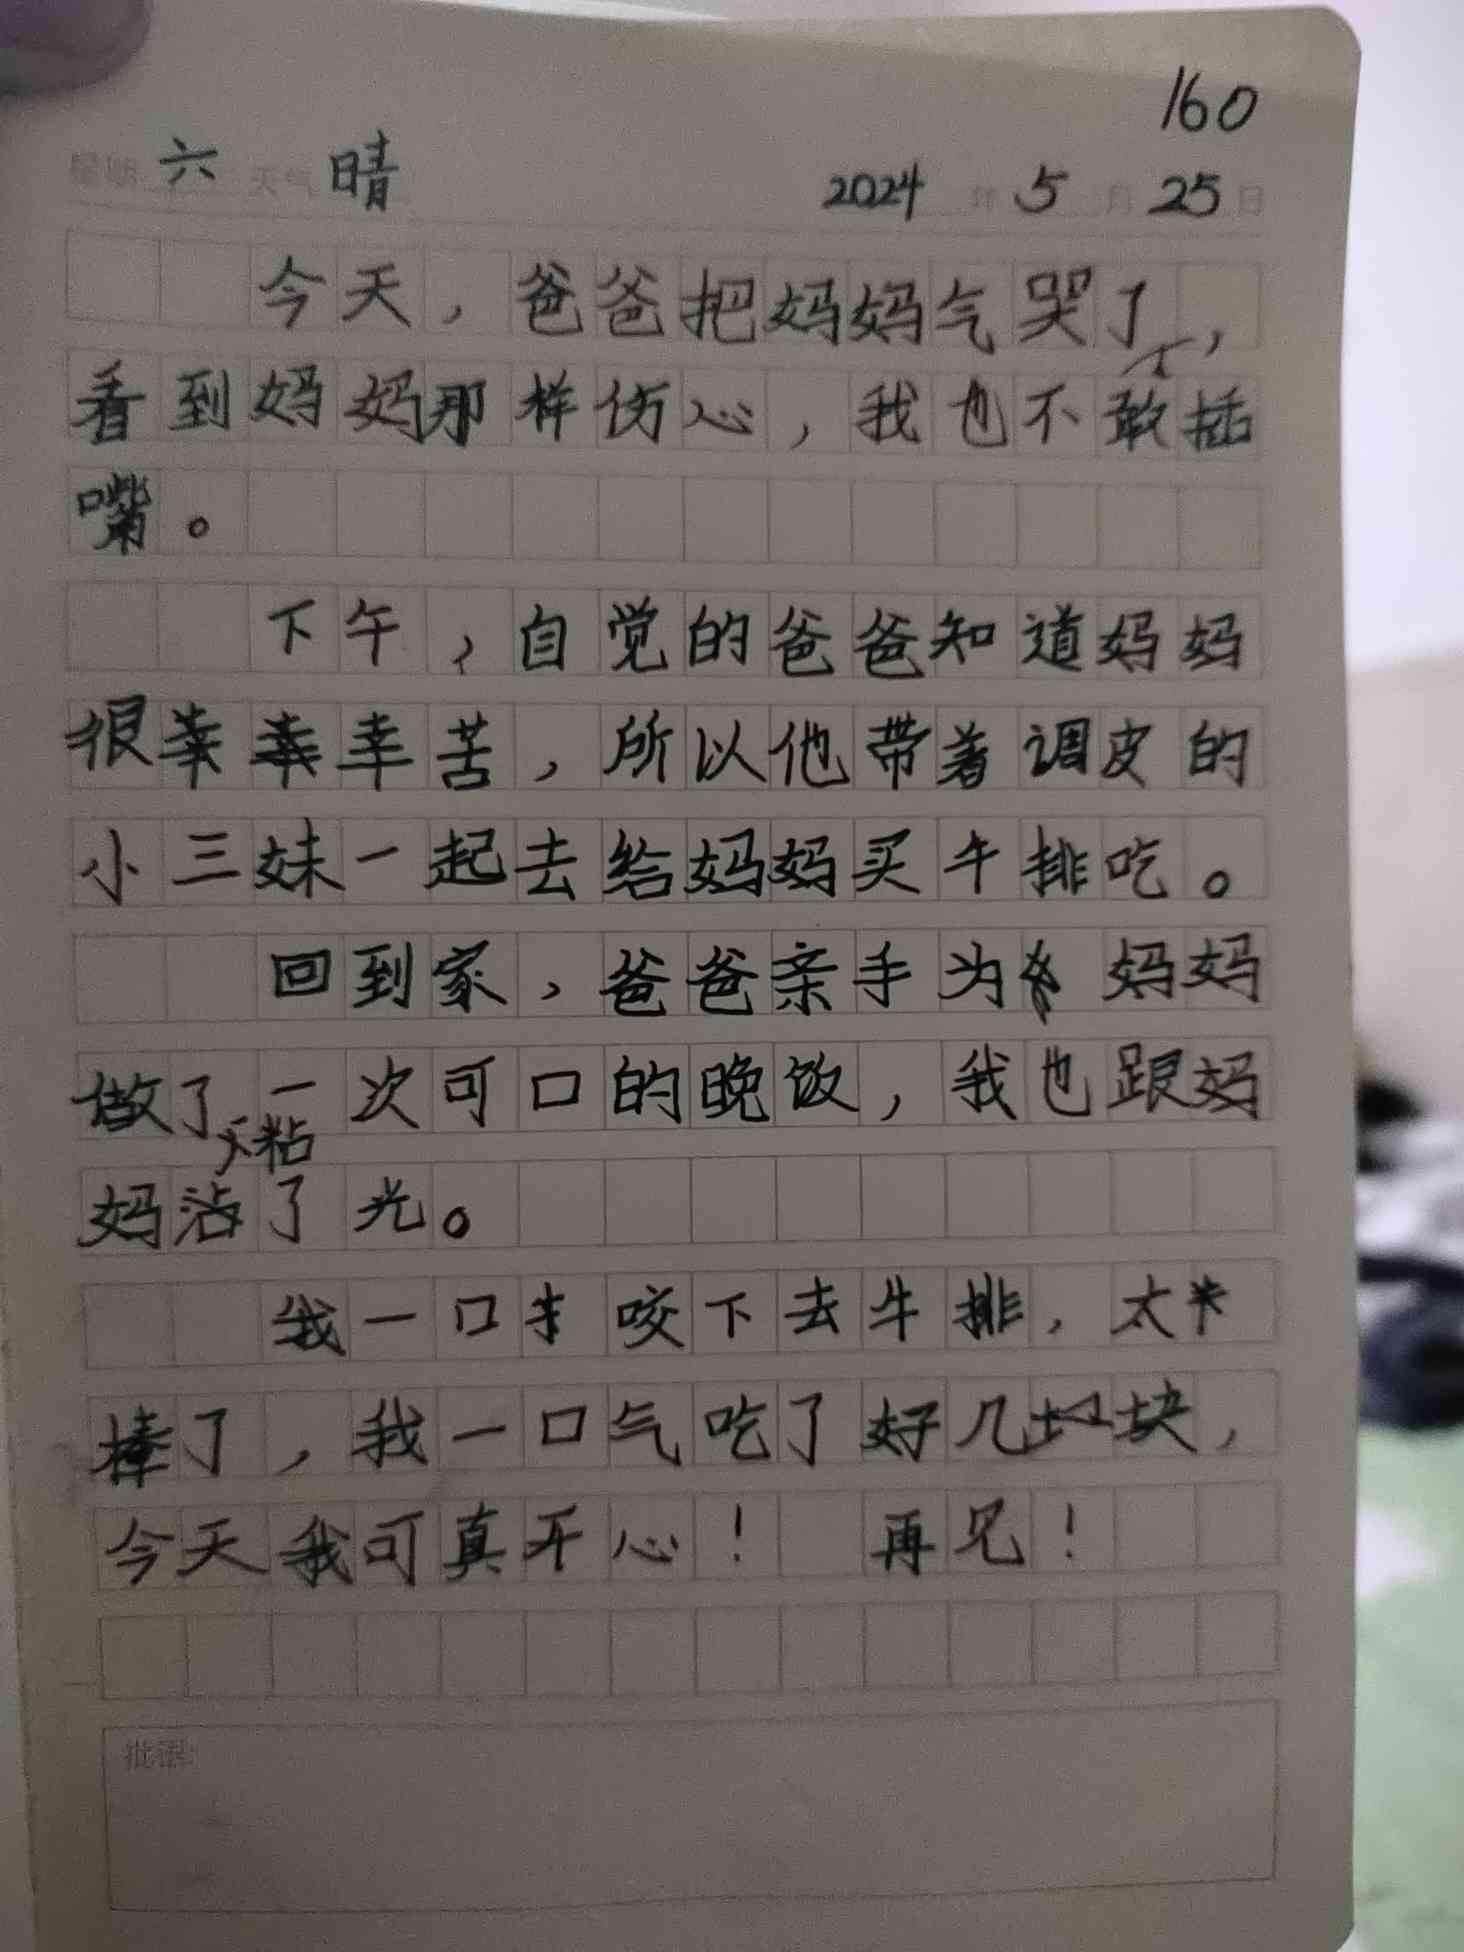 160
星期 六 天气 晴 2024 年 5 月 25 日
今天，爸爸把妈妈气哭了，
看到妈妈那样伤心，我也不敢插
嘴。
下午，自觉的爸爸知道妈妈
很幸苦，所以他带着调皮的
小三妹一起去给妈妈买牛排吃。
回到家，爸爸亲手为妈妈
做了一次可口的晚饭，我也跟妈
粘
妈沾了光。
我一口咬下去牛排，太
棒了，我一口气吃了好几块，
今天我可真开心！ 再见！
批语: